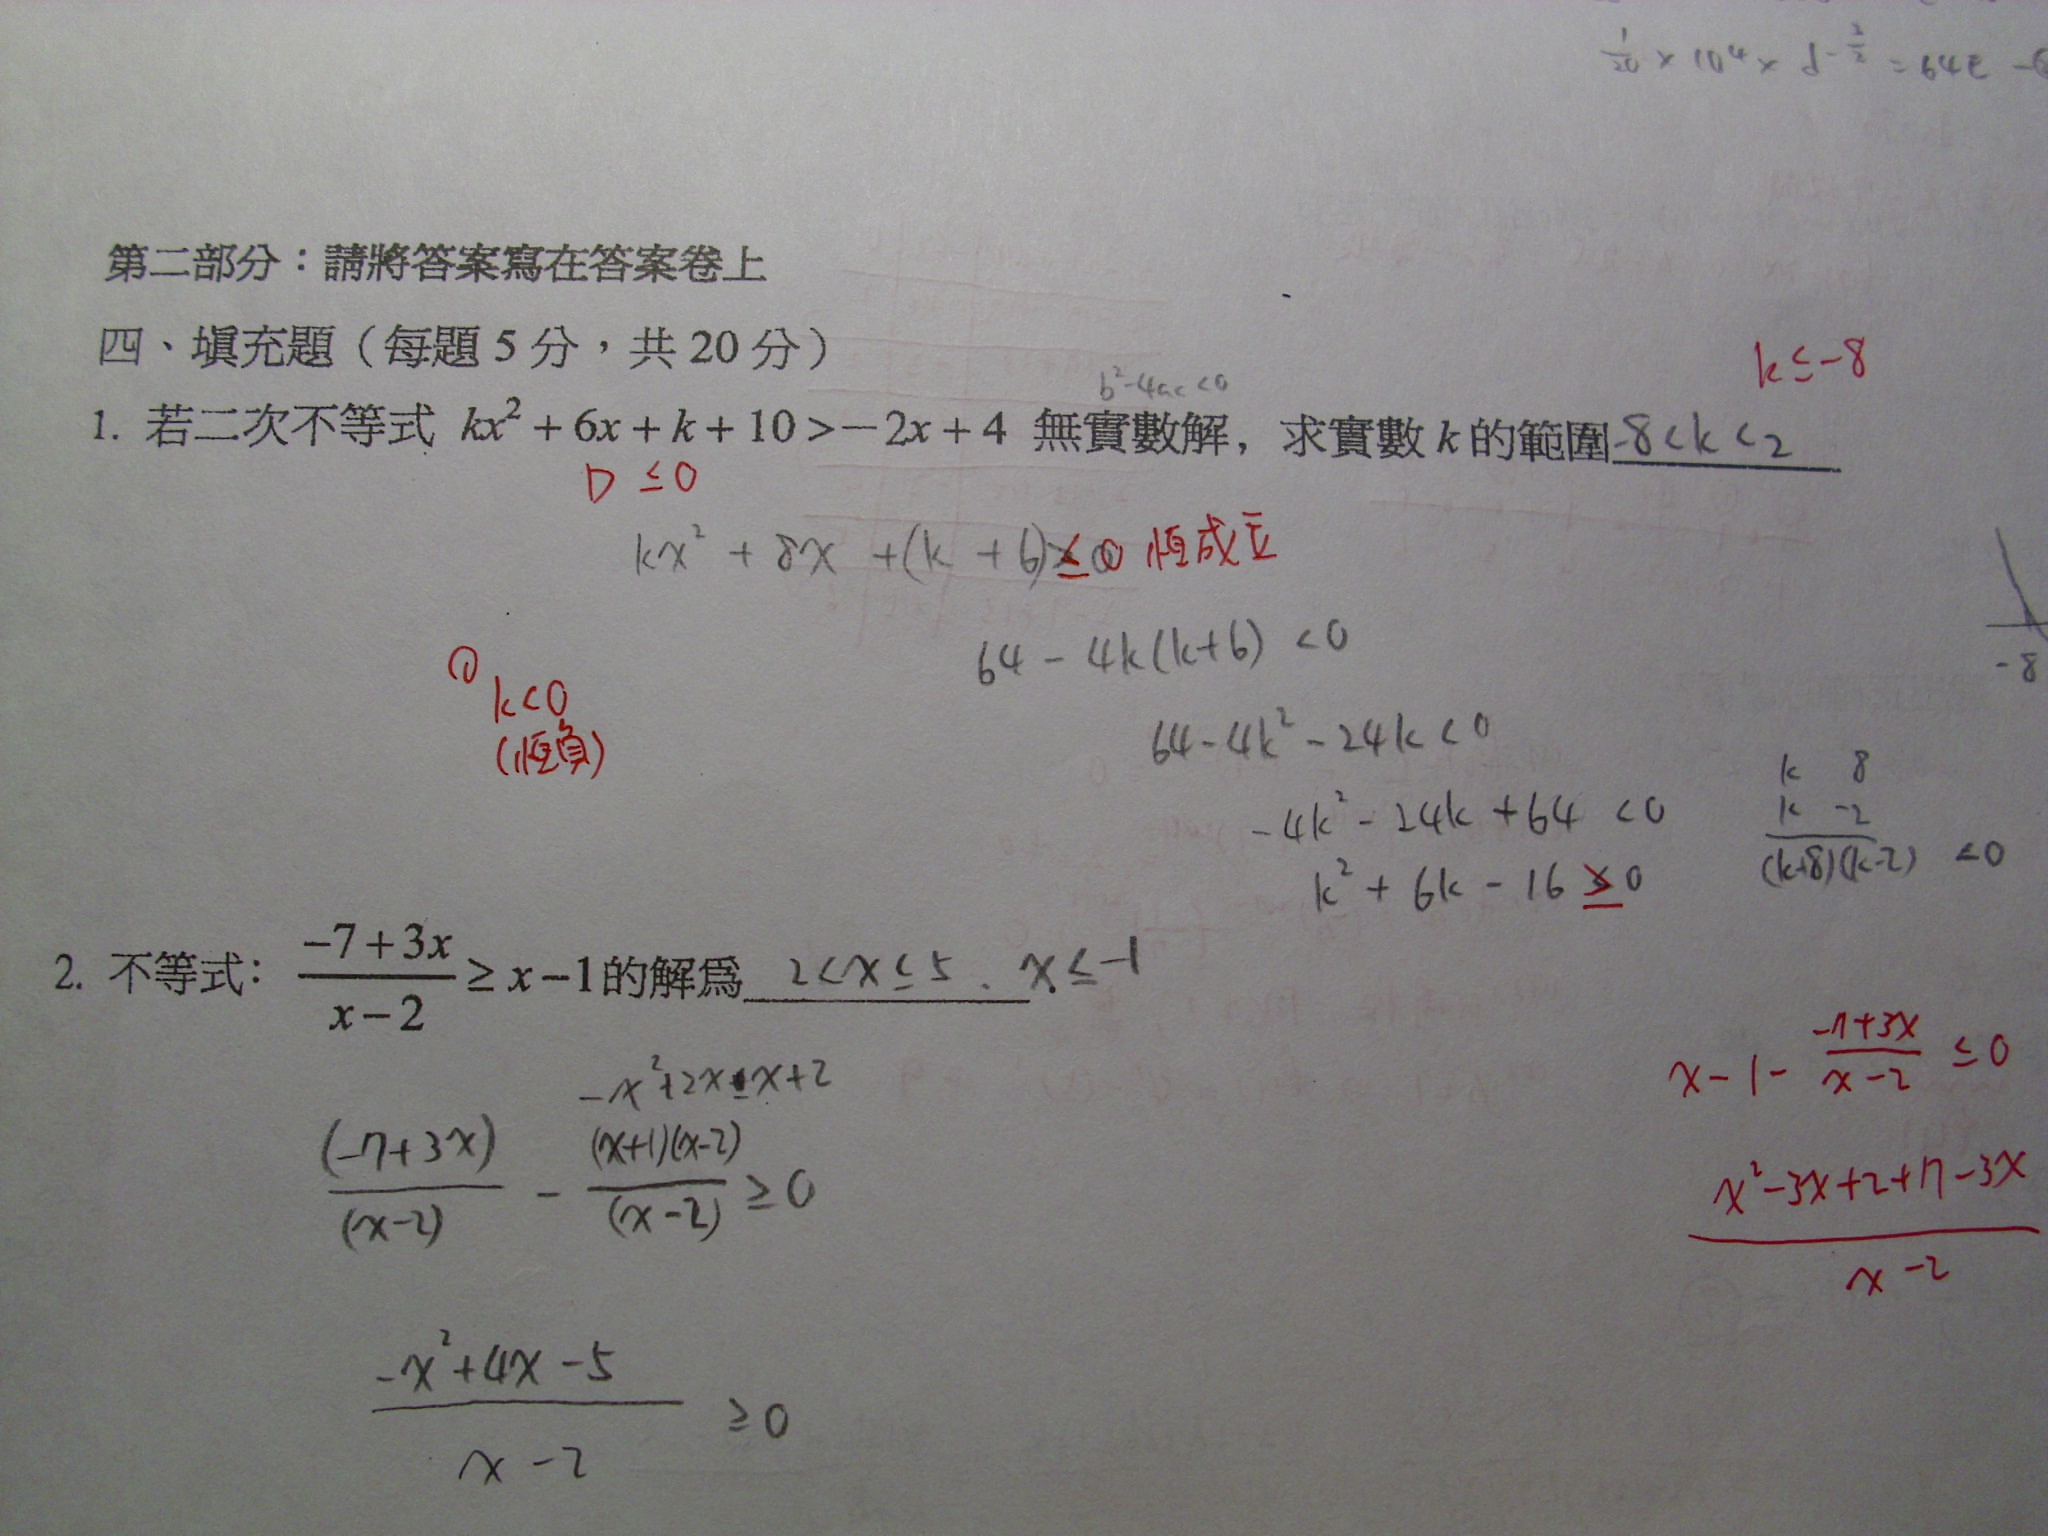 1/20 × 10⁴ × d^-2/2 = 64
第二部分：請將答案寫在答案卷上
四、填充題（每題 5 分，共 20 分）
k ≤ -8
b² - 4ac < 0
1. 若二次不等式 kx² + 6x + k + 10 > -2x + 4 無實數解，求實數 k 的範圍 -8 < k < 2
D ≤ 0
kx² + 8x + (k + 6) ≤ 0 恆成立
① k < 0
(恆負)
64 - 4k(k+6) < 0
-8
64 - 4k² - 24k < 0
k 8
k -2
-4k² - 24k + 64 < 0
(k+8)(k-2) < 0
k² + 6k - 16 ≥ 0
2. 不等式： (-7+3x)/(x-2) ≥ x-1 的解爲 2 < x ≤ 5 . x ≤ -1
x - 1 - (-7+3x)/(x-2) ≤ 0
-x²+2x-x+2
(-7+3x)/(x-2) - (x+1)(x-2)/(x-2) ≥ 0
(x²-3x+2+7-3x)/(x-2)
(-x²+4x-5)/(x-2) ≥ 0